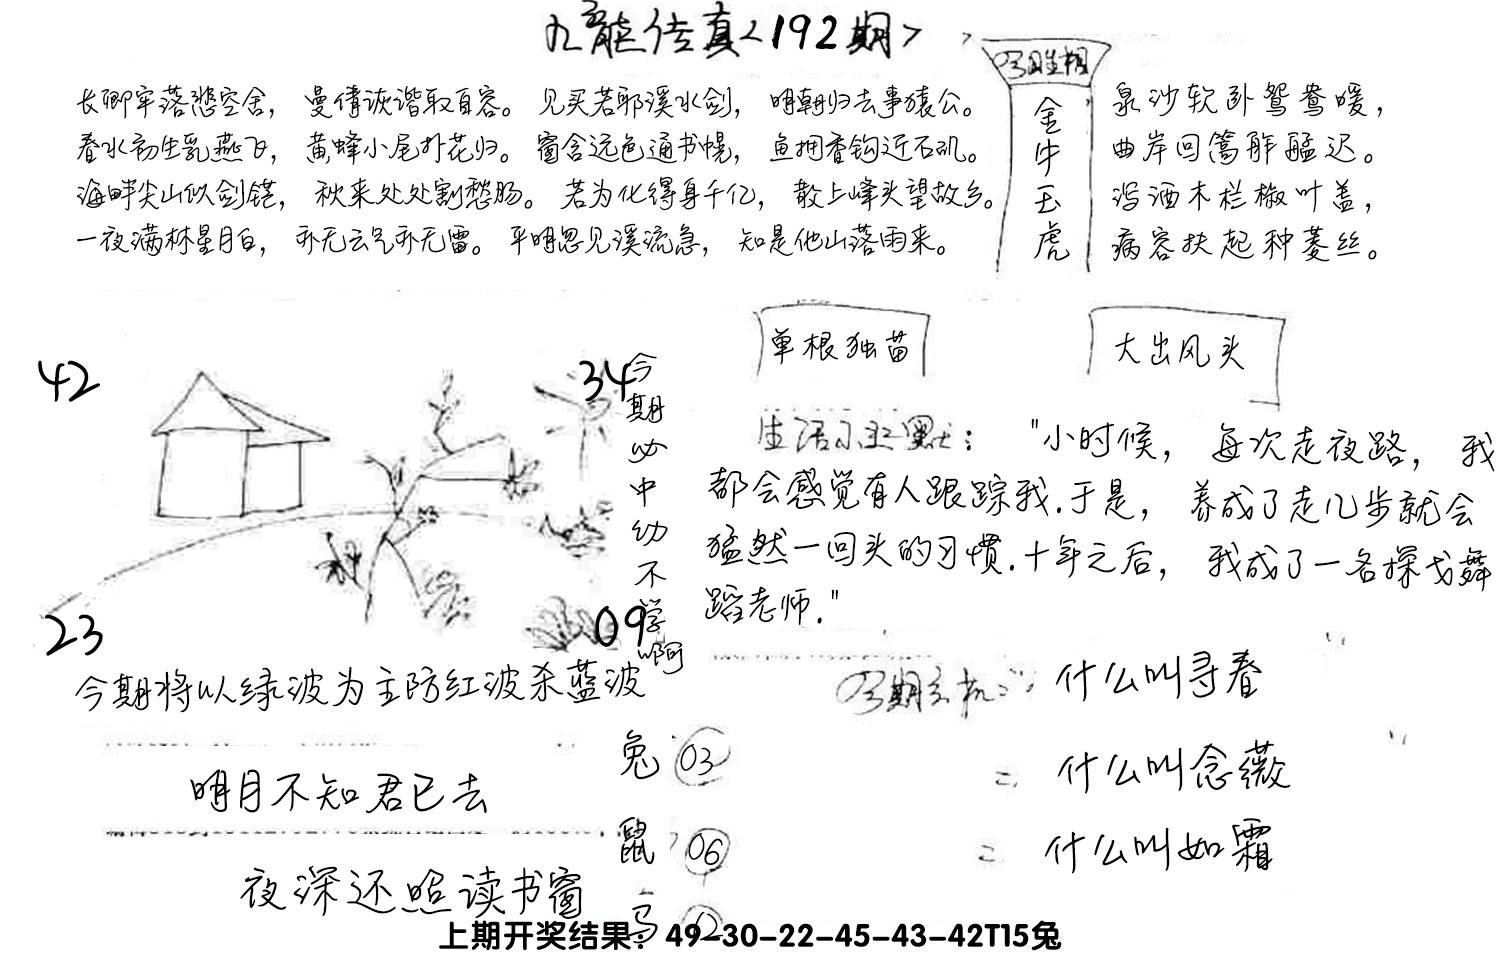 九龙传真<192期>
长卿牢落悲空舍，曼倩诙谐取自容。见买若耶溪水剑，明朝归去事猿公。
春水初生乳燕飞，黄蜂小尾扑花归。窗含远色通书幌，鱼拥香钩近石矶。
海畔尖山似剑铓，秋来处处割愁肠。若为化得身千亿，散上峰头望故乡。
一夜满林星月白，亦无云气亦无雷。平明忽见溪流急，知是他山落雨来。
金牛玉虎
泉沙软卧鸳鸯暖，
曲岸回篙舴艋迟。
泻酒木栏椒叶盖，
病容扶起种菱丝。
42
34
23
09
今期必中幼不学啊
单根独苗
大出风头
生活小幽默："小时候，每次走夜路，我
都会感觉有人跟踪我.于是，养成了走几步就会
猛然一回头的习惯.十年之后，我成了一名探戈舞
蹈老师."
今期将以绿波为主防红波杀蓝波
明月不知君已去
夜深还照读书窗
兔 03
鼠 06
马 02
今期玄机：什么叫寻春
什么叫念薇
什么叫如霜
上期开奖结果：49-30-22-45-43-42T15兔